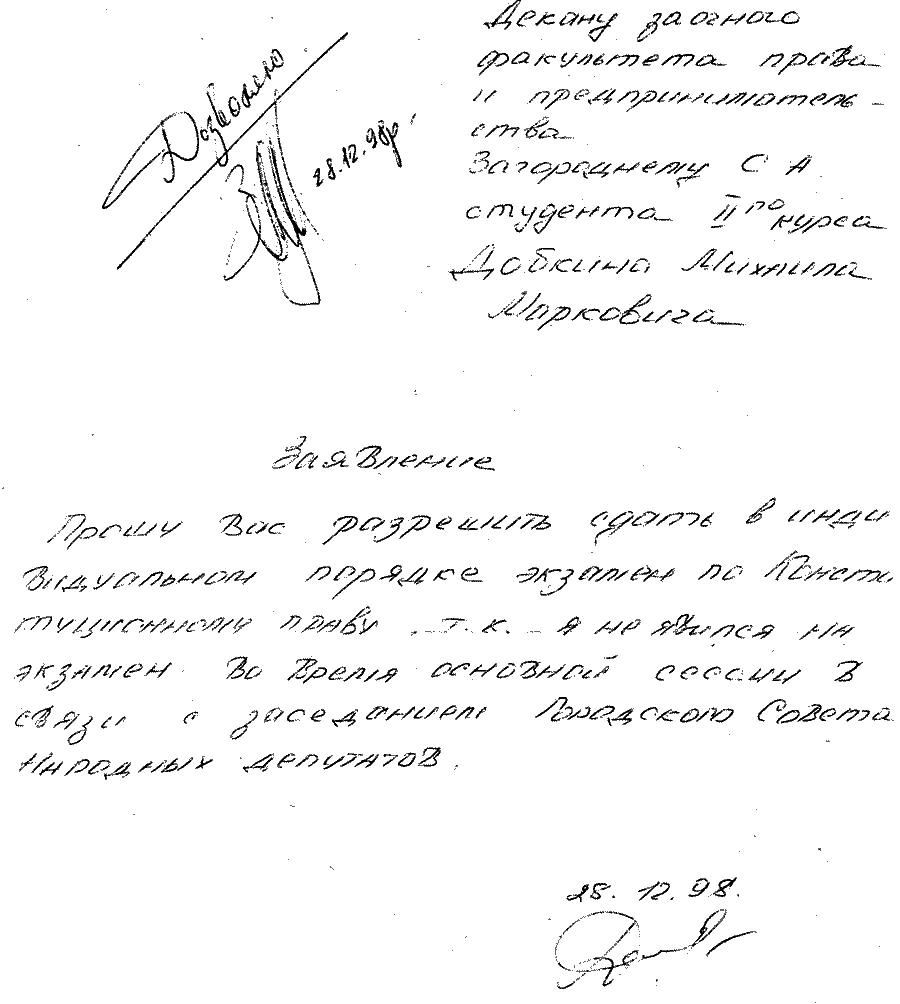 Дозволено
28.12.98р.
Декану заочного
факультета права
и предприниматель-
ства
Загороднему С А
студента II го курса
Добкина Михаила
Марковича
Заявление
Прошу Вас разрешить сдать в инди
видуальном порядке экзамен по Консти
туционному праву, т.к. я не явился на
экзамен во время основной сессии в
связи с заседанием Городского Совета
Народных депутатов.
28.12.98.